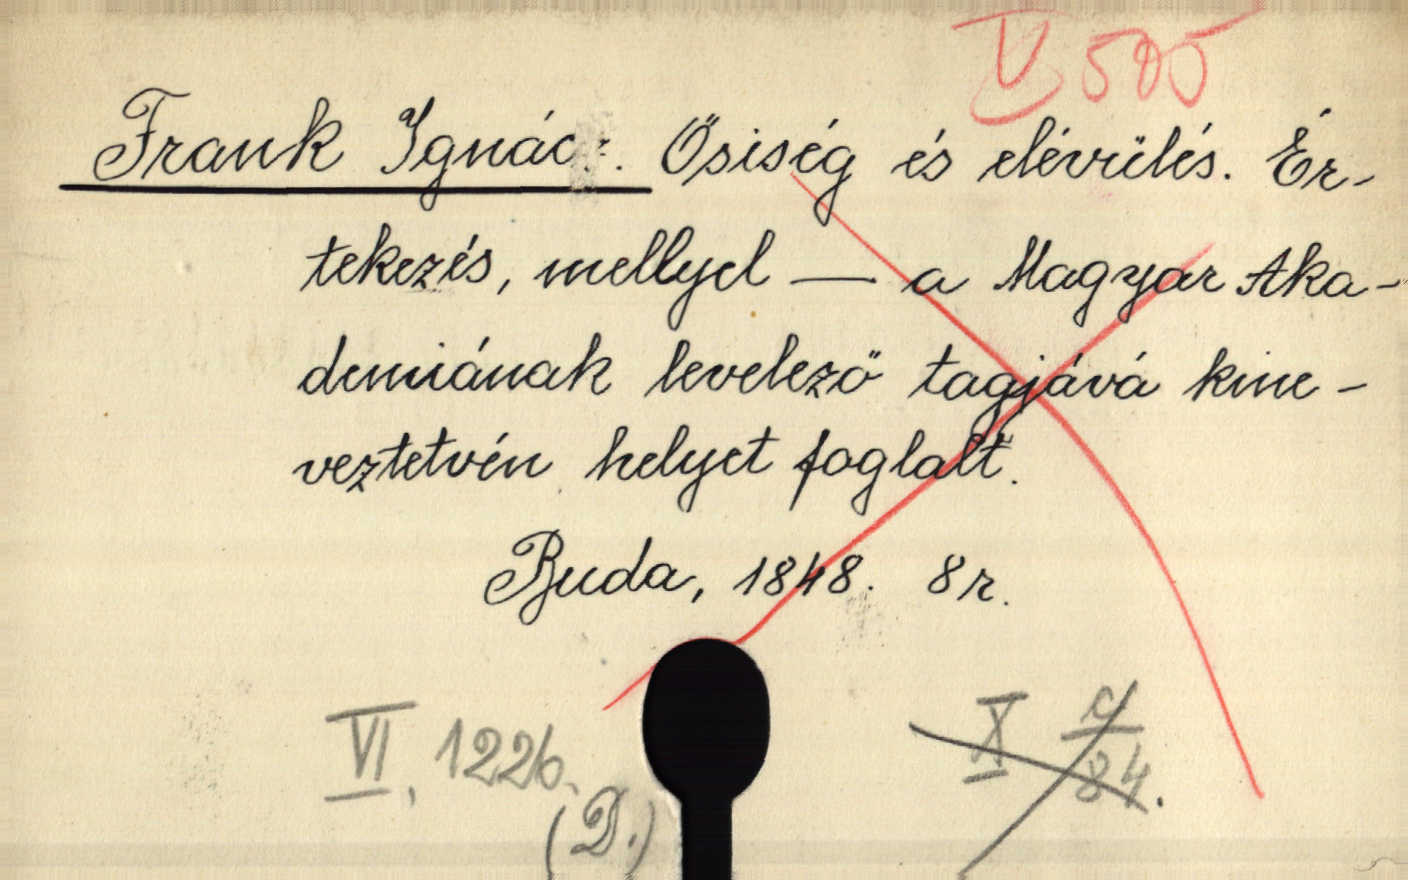 V 505
Frank Ignác. Ősiség és elévülés. Ér-
tekezés, mellyel — a Magyar Aka-
demiának levelező tagjává kine-
veztetvén helyet foglalt.
Buda, 1848. 8r.
VI, 1226.
(D.)
X c/84.